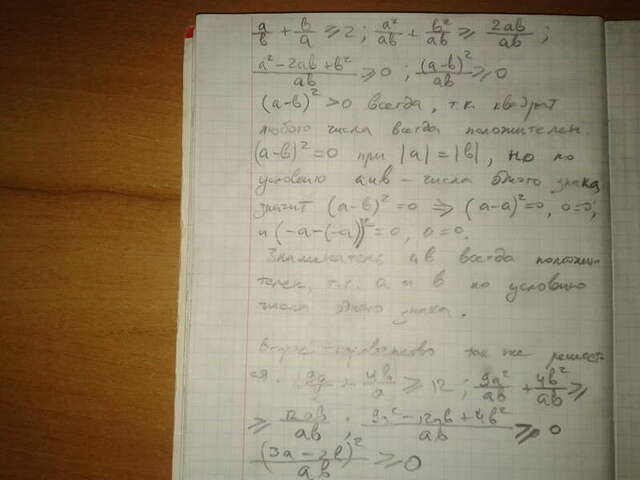 a/в + в/a ≥ 2 ; a²/aв + в²/aв ≥ 2aв/aв ;
(a² - 2aв + в²)/aв ≥ 0 ; (a-в)²/aв ≥ 0
(a-в)² > 0 всегда, т.к. квадрат
любого числа всегда положителен.
(a-в)² = 0 при |a| = |в|, но по
условию a и в – числа одного знака,
значит (a-в)² = 0 ⇒ (a-a)² = 0, 0=0;
и (-a-(-a))² = 0, 0=0.
Знаменатель aв всегда положи-
телен, т.к. a и в по условию
числа одного знака.
Второе неравенство так же решает-
ся. 9a/в + 4в/a ≥ 12 ; 9a²/aв + 4в²/aв ≥
≥ 12aв/aв ; (9a² - 12aв + 4в²)/aв ≥ 0
(3a - 2в)²/aв ≥ 0